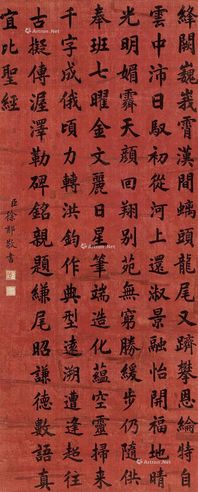 絳闕巍峩霄漢間螭頭龍尾又躋攀恩綸特自
雲中沛日馭初從河上還淑景融怡開福地晴
光明媚霽天顏回翔別苑無窮勝緩步仍隨供
奉班七曜金文麗日星筆端造化蘊空靈掃來
千字成俄頃力轉洪鈞作典型遠溯遭逢起往
古擬傳渥澤勒碑銘親題縑尾昭謙德數語真
宜比聖經
臣徐郙敬書